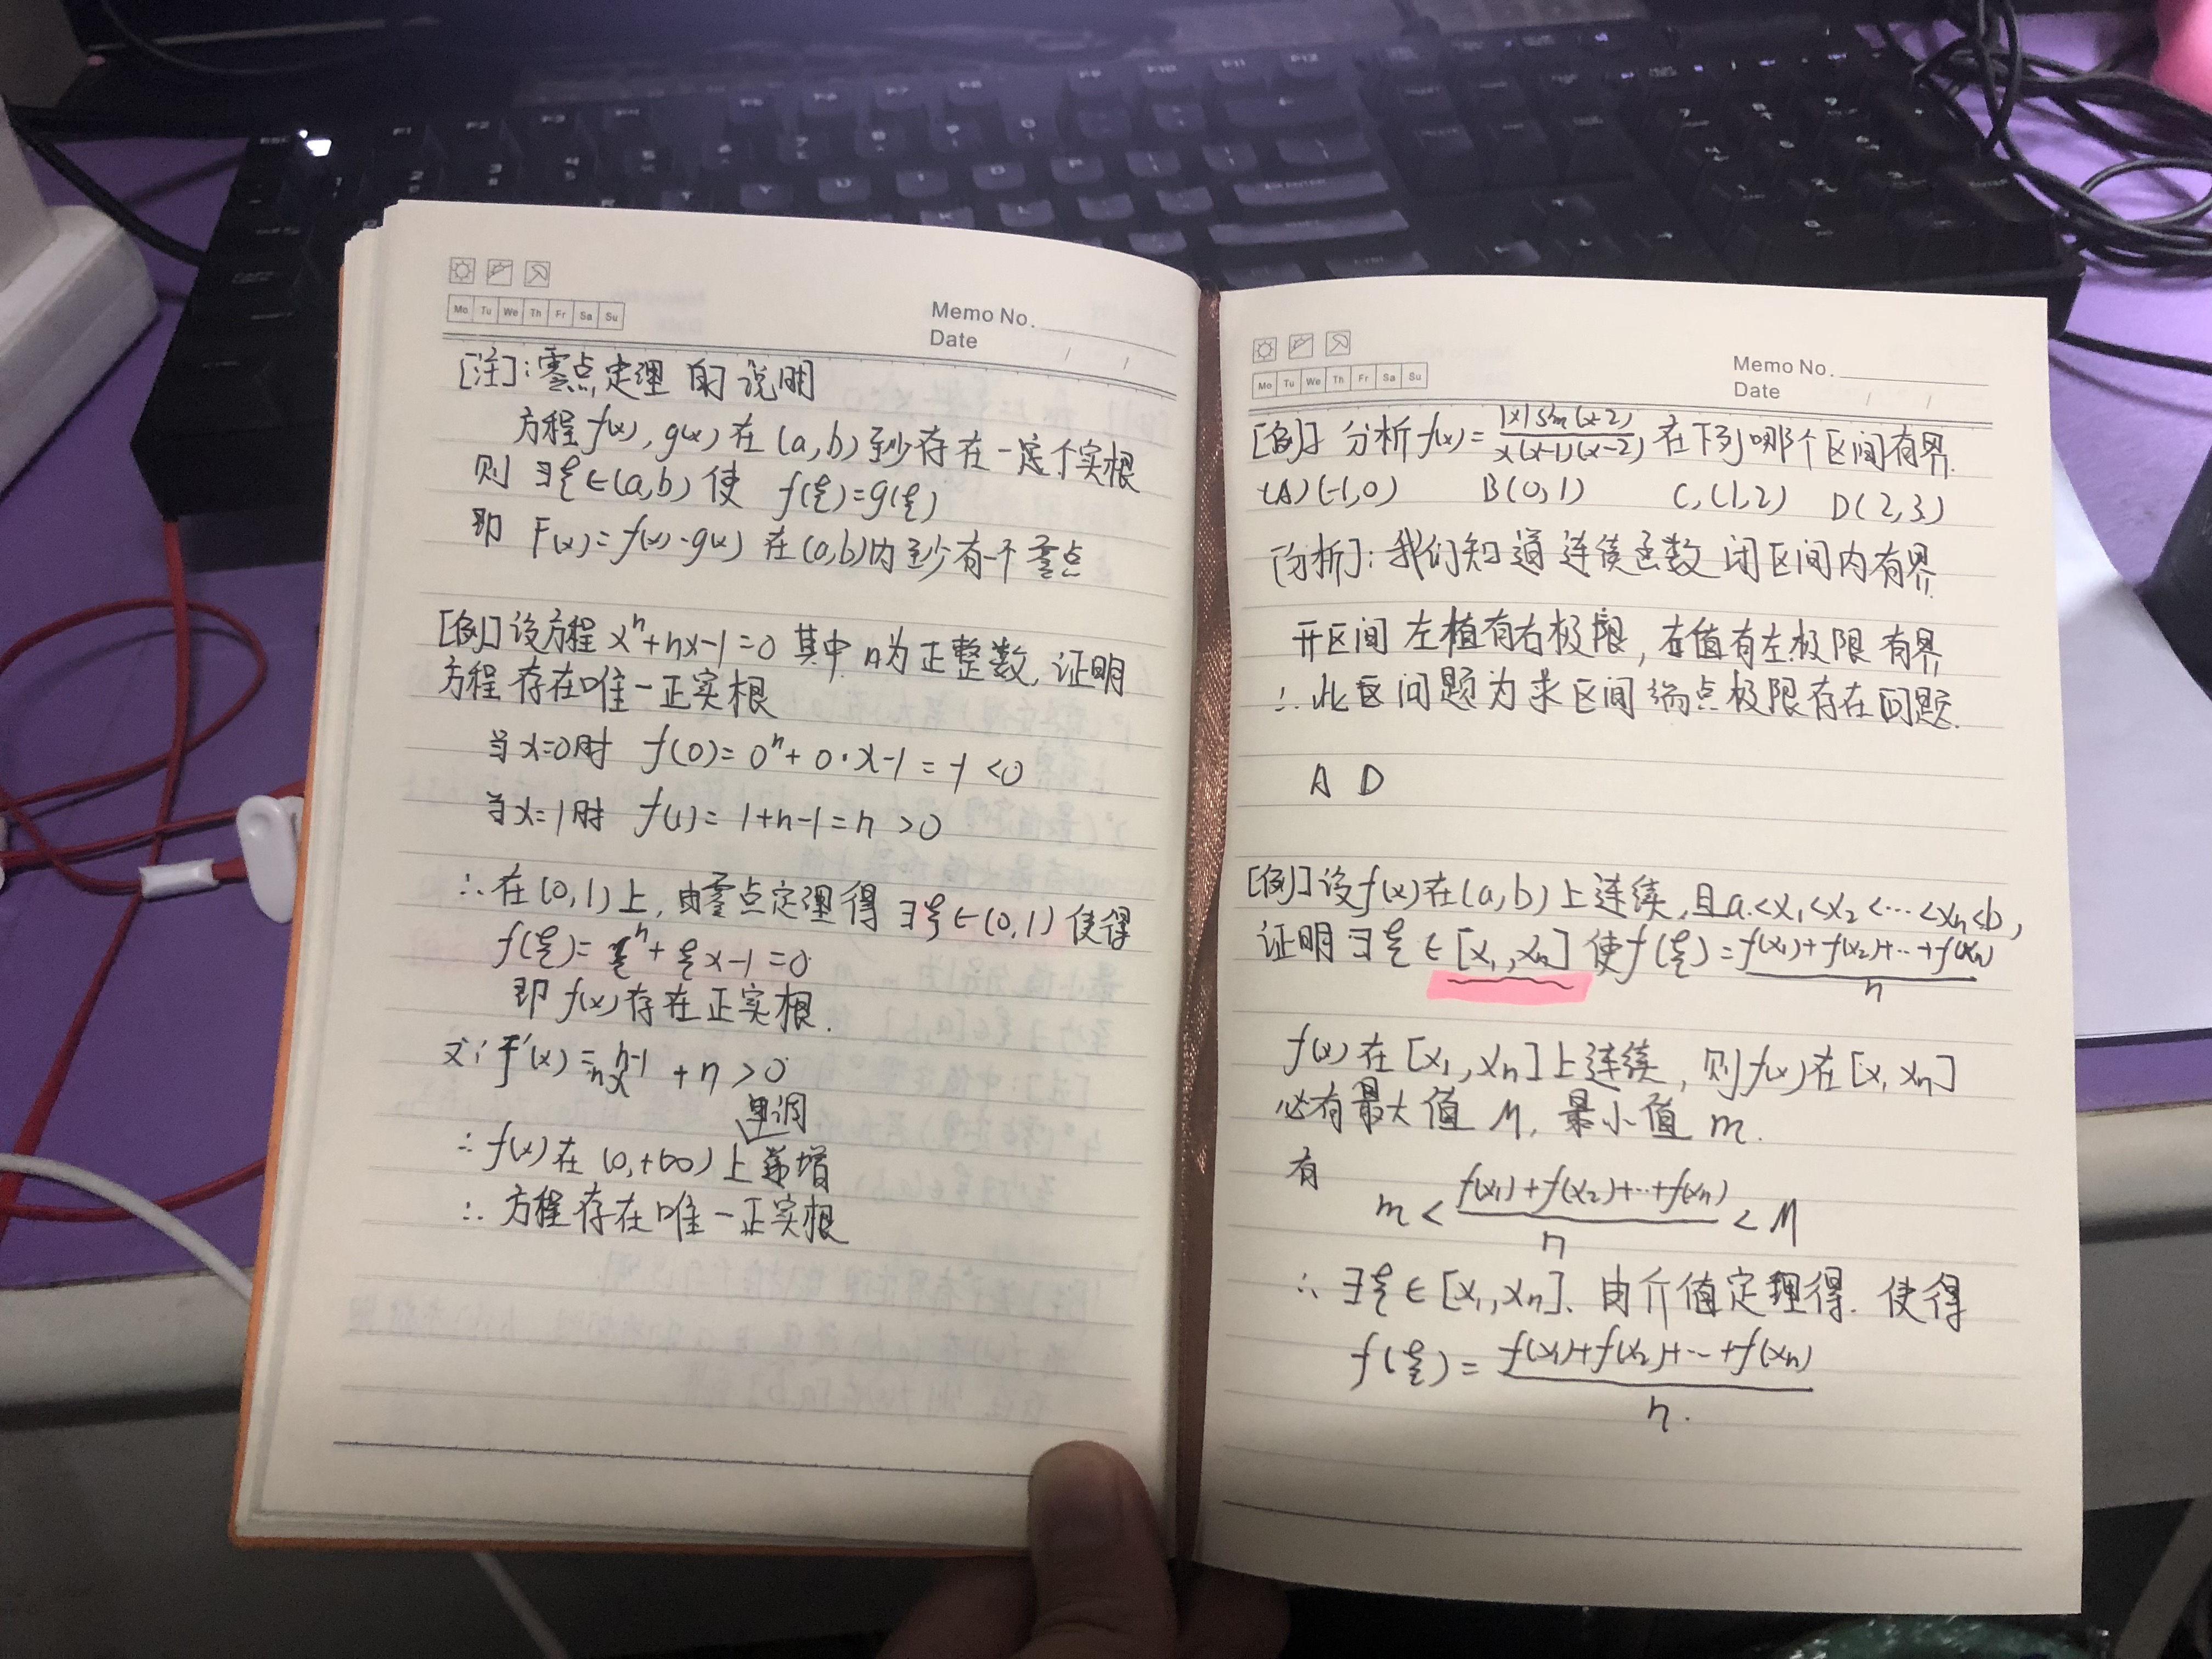 Mo Tu We Th Fr Sa Su
Memo No.
Date / /
[注]:零点定理的说明
方程f(x),g(x)在(a,b)至少存在一定个实根
则 ∃ξ∈(a,b)使 f(ξ)=g(ξ)
即 F(x)=f(x)-g(x) 在(a,b)内至少有一个零点
[例]设方程 xⁿ+nx-1=0 其中 n为正整数,证明
方程存在唯一正实根
当x=0时 f(0)=0ⁿ+0·x-1=-1<0
当x=1时 f(1)=1+n-1=n>0
∴在(0,1)上,由零点定理得 ∃ξ∈(0,1)使得
f(ξ)=ξⁿ+ξx-1=0
即 f(x)存在正实根.
又∵F'(x)=nxⁿ⁻¹+n>0
单调
∴f(x)在(0,+∞)上递增
∴方程存在唯一正实根
Mo Tu We Th Fr Sa Su
Memo No.
Date / /
[例] 分析f(x)=|x|sin(x-2)/x(x-1)(x-2) 在下列哪个区间有界.
(A)(-1,0) B(0,1) C,(1,2) D(2,3)
[分析]:我们知道连续函数闭区间内有界
开区间左值有右极限,右值有左极限有界
∴此区间题为求区间端点极限存在问题.
A D
[例]设f(x)在(a,b)上连续,且a<x₁<x₂<…<xₙ<b,
证明∃ξ∈[x₁,xₙ]使f(ξ)=f(x₁)+f(x₂)+…+f(xₙ)/n
f(x)在[x₁,xₙ]上连续,则f(x)在[x,xₙ]
必有最大值 M,最小值 m.
有
m<f(x₁)+f(x₂)+…+f(xₙ)/n<M
∴∃ξ∈[x₁,xₙ].由介值定理得.使得
f(ξ)=f(x₁)+f(x₂)+…+f(xₙ)/n.